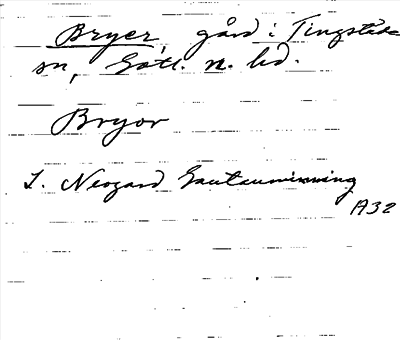 Bryer, gård i Tingstäde
sn, Gotl. n. hd.
Bryor
L. Neogard Gautauminning
1732